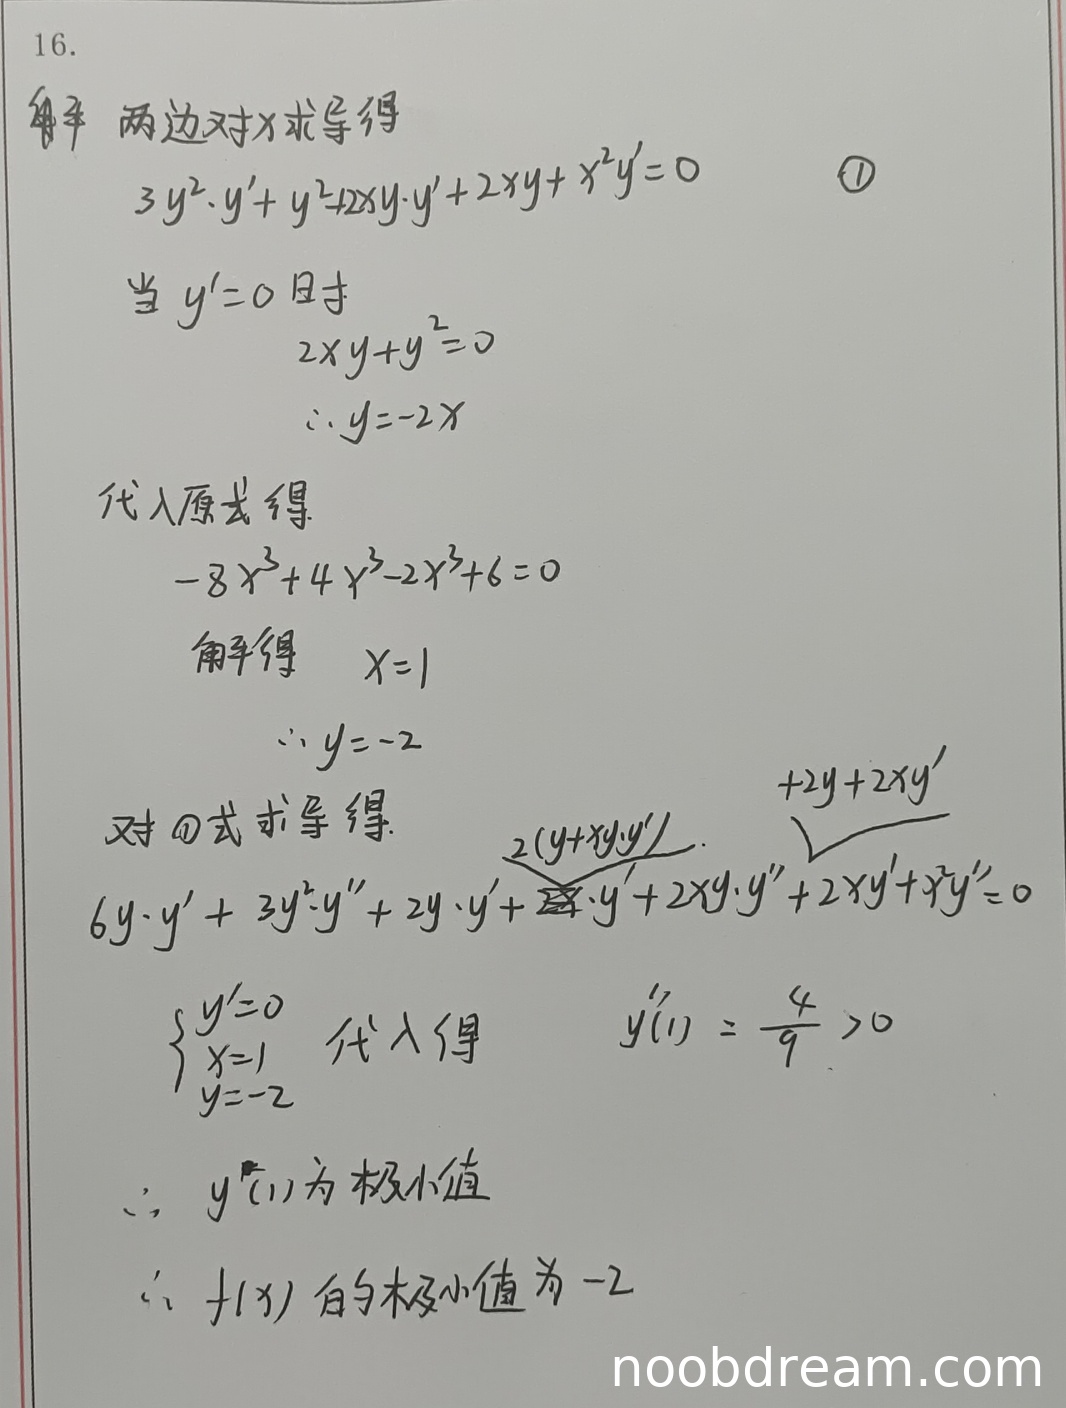 16.
解 两边对x求导得
3y²·y′+y²+2xy·y′+2xy+x²y′=0 ①
当 y′=0 时
2xy+y²=0
∴y=-2x
代入原式得
-8x³+4x³-2x³+6=0
解得 x=1
∴y=-2
对①式求导得
2(y+xy·y′) +2y+2xy′
6y·y′+3y²·y″+2y·y′+·y′+2xy·y″+2xy′+x²y″=0
{y′=0
x=1 代入得 y″(1)=4/9>0
y=-2
∴ y(1)为极小值
∴ f(x)的极小值为-2
noobdream.com